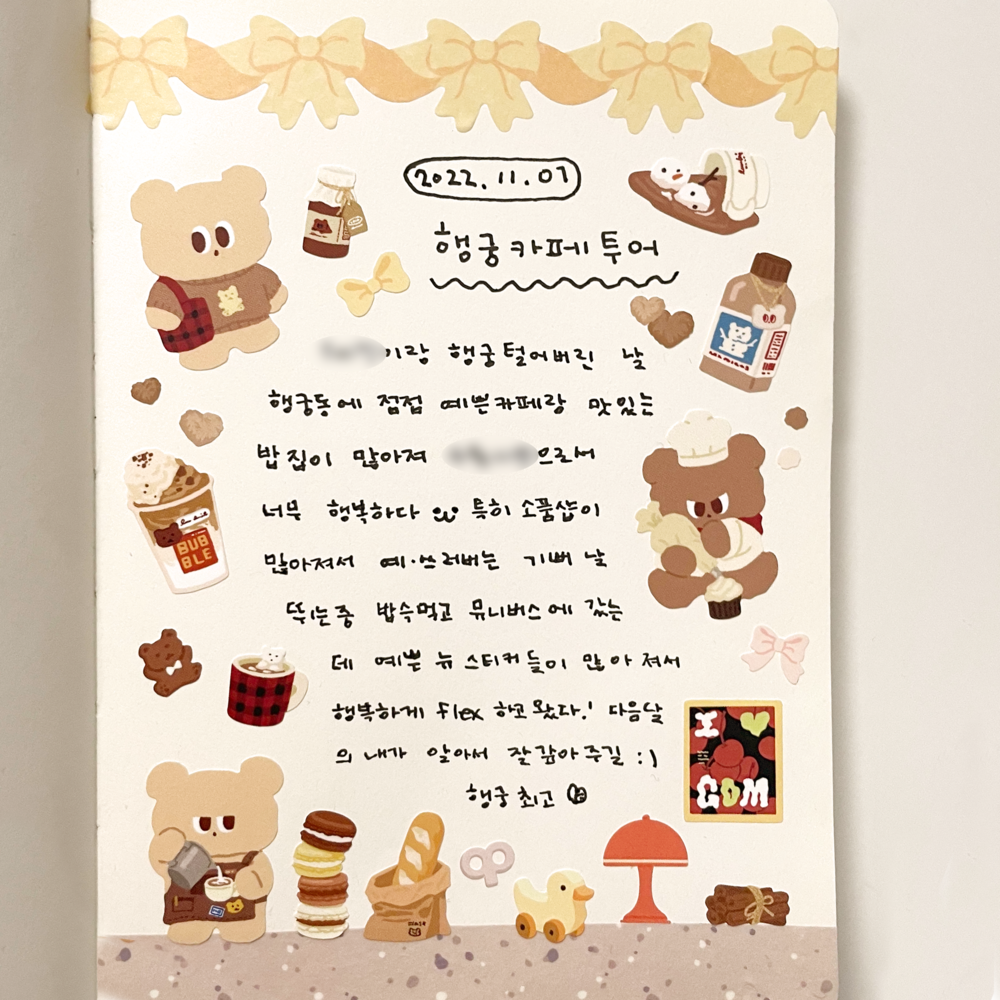 2022.11.07
행궁카페투어
이랑 행궁털어버린 날
행궁동에 점점 예쁜카페랑 맛있는
밥집이 많아져 으로서
너무 행복하다 특히 소품샵이
많아져서 예·쓰러버는 기뻐 날
뛰는중 밥슥먹고 뮤니버스에 갔는
데 예쁜 뉴스티커들이 많아져서
행복하게 flex 하고 왔다! 다음달
의 내가 알아서 잘 갚아주길 :)
행궁최고
BUB
BLE
I
GDM